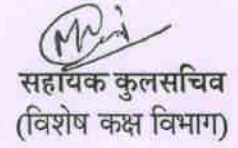 सहायक कुलसचिव
(विशेष कक्ष विभाग)